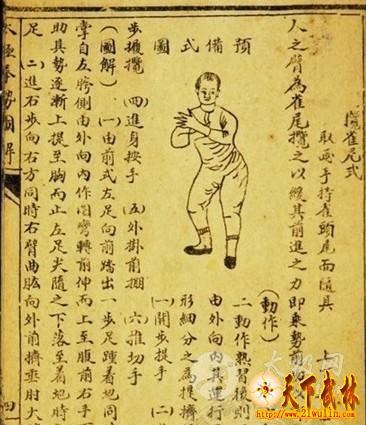 攬雀尾式
取兩手持雀頭尾而隨其
人之臂為雀尾攬之以緩其前進之力即乘勢前
(動作)
二動作熟習後則
由外向內其運行
形細分之為掤擠
(一)開步提手 (二)
預備式圖
步 攬 (四)進身按手 (五)外掛前掤 (六)推切手
(圖解) (一)由前式左足向前踏出一步足踵着地同
掌自左胯側由外向內作圈彎轉前伸而上至腹前右手
助其勢逐漸上提至胸而止左足尖隨之下落至着地時
足 (二)進右步向右方同時右臂曲肱向外前擠垂肘大
太極拳勢圖解 四
天下武林
http://www.21wulin.com/